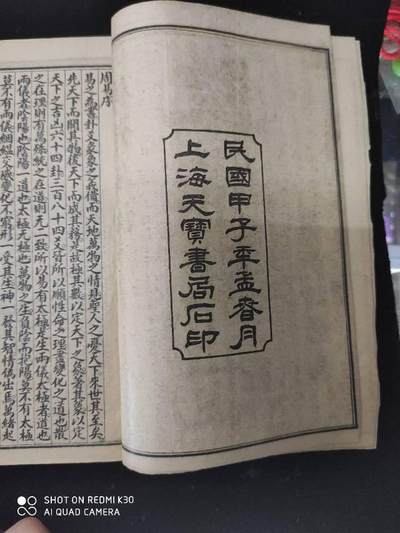 民國甲子年孟春月
上海天寶書局石印
周易序
易之為書卦爻彖象之義備而天地萬物之情見聖人之憂天下來世其至矣
先天下而開其物後天下而成其務是故極其數以定天下之象著其象以定
天下之吉凶六十四卦三百八十四爻皆所以順性命之理盡變化之道也散
之在理則有萬殊統之在道則无二致所以易有太極是生兩儀太極者道也
兩儀者陰陽也陰陽一道也太極无極也萬物之生負陰而抱陽莫不有太極
莫不有兩儀絪縕交感變化不窮形一受其生神一發其智情偽出焉萬緒起
SHOT ON REDMI K30
AI QUAD CAMERA